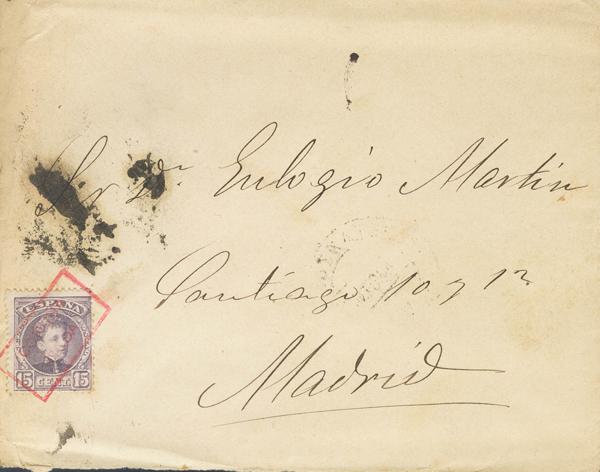 Sr Dn. Eulogio Martin
Santiago 10 y 12
Madrid
ESPAÑA
15 CENT. 15